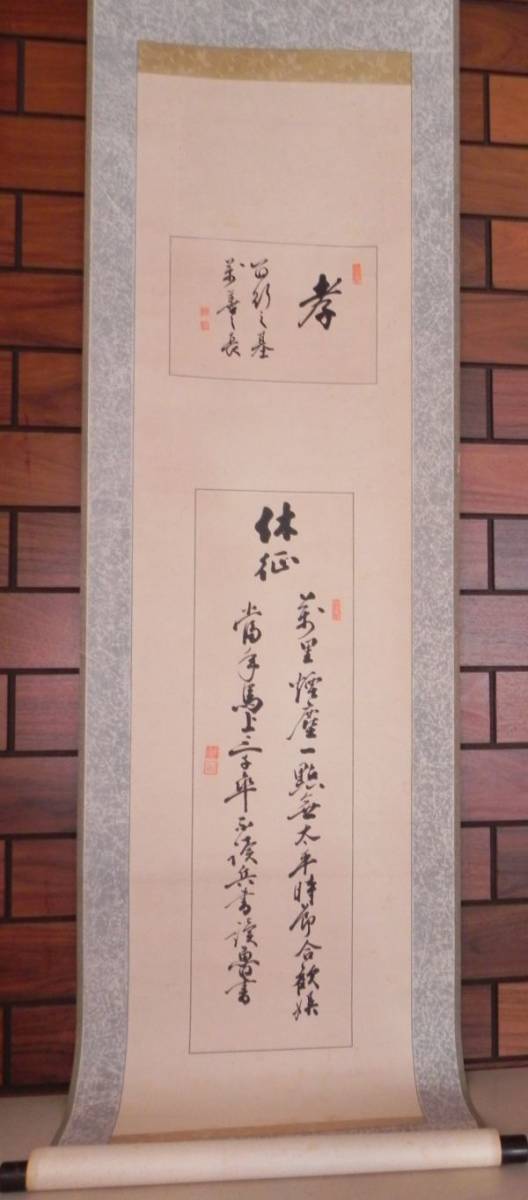 孝
百行之基
萬善之長
休征
萬里煙塵一點無太平時節合歡娯
當年馬上三千卒不讀兵書讀魯書